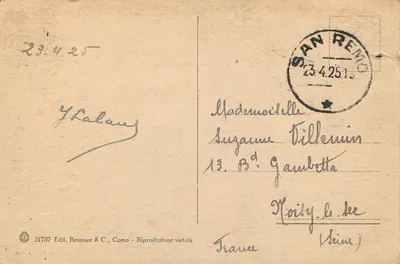 23.4.25
SAN REMO
23.4.25 1
Mademoiselle
Suzanne Villemin
13. Bd Gambetta
Noisy-le-sec
(Seine)
France
21737 Edit. Brunner & C., Como - Riproduzione vietata